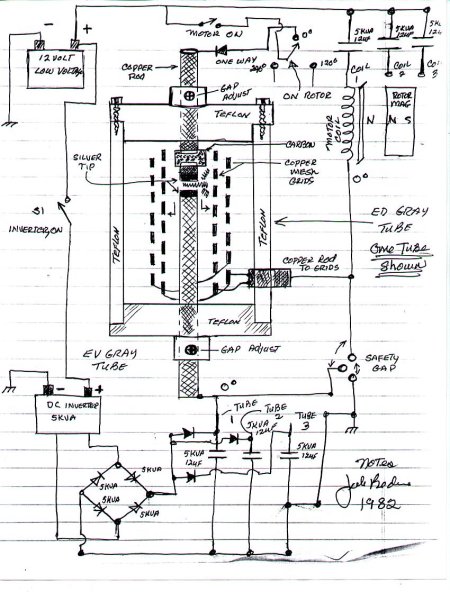 - +
12 VOLT
LOW VOLTAGE
MOTOR ON
0°
5KVA
12UF
5KVA
12UF
5K
12U
COPPER
ROD
ONE WAY
240°
120°
ON ROTOR
COIL
1
COIL
2
3
GAP
ADJUST
TEFLON
MOTOR
COIL
N
ROTOR
MAG
N S
SILVER
TIP
CARBON
COPPER
MESH
GRIDS
0°
S1
INVERTER ON
TEFLON
TEFLON
ED GRAY
TUBE
One Tube
Shown
COPPER ROD
TO GRIDS
TEFLON
EV GRAY
TUBE
GAP ADJUST
SAFETY
GAP
0°
- +
DC INVERTER
5KVA
TUBE
1
TUBE
2
TUBE
3
5KVA
12UF
5KVA
12UF
5KVA
12UF
5KVA
5KVA
5KVA
5KVA
Notes
1982